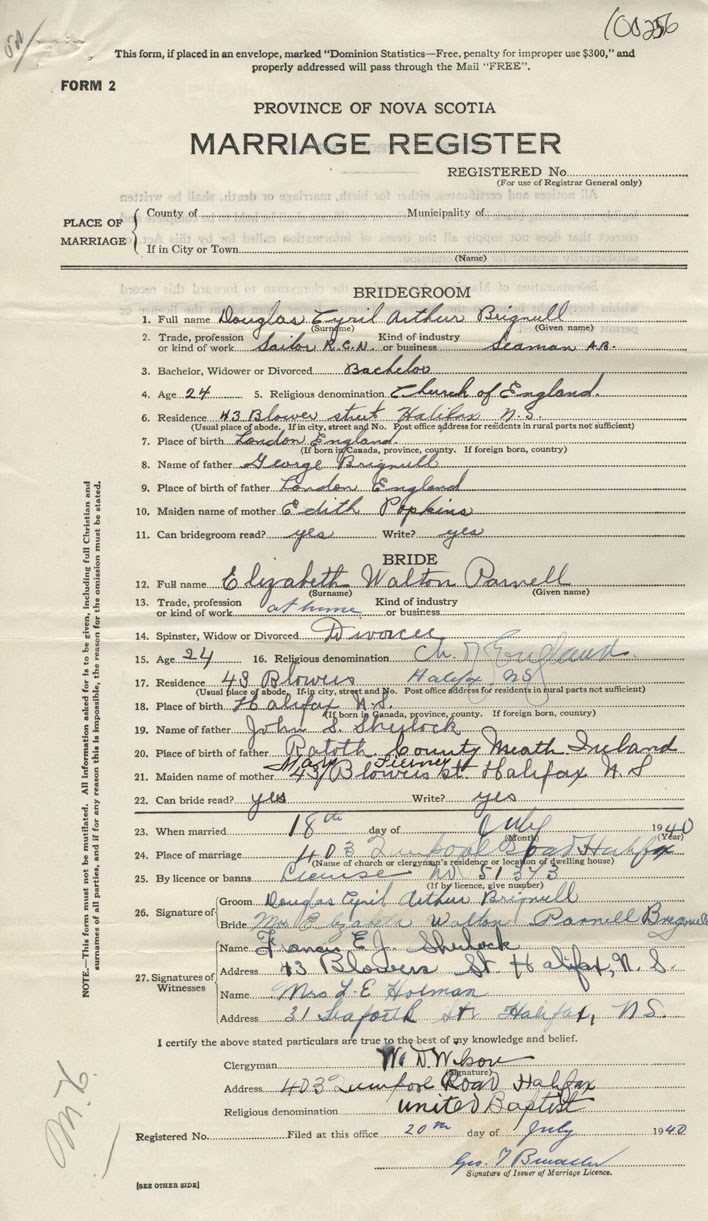 100256
This form, if placed in an envelope, marked "Dominion Statistics—Free, penalty for improper use $300," and
properly addressed will pass through the Mail "FREE".
FORM 2
PROVINCE OF NOVA SCOTIA
MARRIAGE REGISTER
REGISTERED No.
(For use of Registrar General only)
PLACE OF MARRIAGE
County of Municipality of
If in City or Town
(Name)
BRIDEGROOM
1. Full name Douglas Cyril Arthur Brignull
(Surname) (Given name)
2. Trade, profession or kind of work Sailor R.C.N. Kind of industry or business Seaman A.B.
3. Bachelor, Widower or Divorced Bachelor
4. Age 24 5. Religious denomination Church of England.
6. Residence 43 Blower street Halifax N.S.
(Usual place of abode. If in city, street and No. Post office address for residents in rural parts not sufficient)
7. Place of birth London England.
(If born in Canada, province, county. If foreign born, country)
8. Name of father George Brignull
9. Place of birth of father London England
10. Maiden name of mother Edith Popkins
11. Can bridegroom read? yes Write? yes
BRIDE
12. Full name Elizabeth Walton Parnell
(Surname) (Given name)
13. Trade, profession or kind of work at home Kind of industry or business
14. Spinster, Widow or Divorced Divorcee
15. Age 24 16. Religious denomination Ch. of England.
17. Residence 43 Blowers Halifax NS
(Usual place of abode. If in city, street and No. Post office address for residents in rural parts not sufficient)
18. Place of birth Halifax N.S.
(If born in Canada, province, county. If foreign born, country)
19. Name of father John S. Sherlock
20. Place of birth of father Ratoth County Meath Ireland
Mary Tierney
21. Maiden name of mother 43 Blowers st. Halifax N.S
22. Can bride read? yes Write? yes
23. When married 18th day of July 1940
(Month) (Year)
24. Place of marriage 403 Road Halifax
(Name of church or clergyman's residence or location of dwelling house)
25. By licence or banns License no 51343
(If by licence, give number)
26. Signature of
Groom Douglas Cyril Arthur Brignull
Bride Mrs Elizabeth Walton Parnell Brignull
27. Signatures of Witnesses
Name Francis E.J. Sherlock
Address 43 Blowers St. Halifax, N.S.
Name Mrs L. E Holman
Address 31 Seaforth str Halifax, N.S.
I certify the above stated particulars are true to the best of my knowledge and belief.
Clergyman W. D. Wilson
(Signature)
Address 403 Road Halifax
Religious denomination United Baptist
Registered No. Filed at this office 20th day of July 1940
Geo. T
Signature of Issuer of Marriage Licence.
[SEE OTHER SIDE]
NOTE.—This form must not be mutilated. All information asked for is to be given, including full Christian and
surnames of all parties, and if for any reason this is impossible, the reason for the omission must be stated.